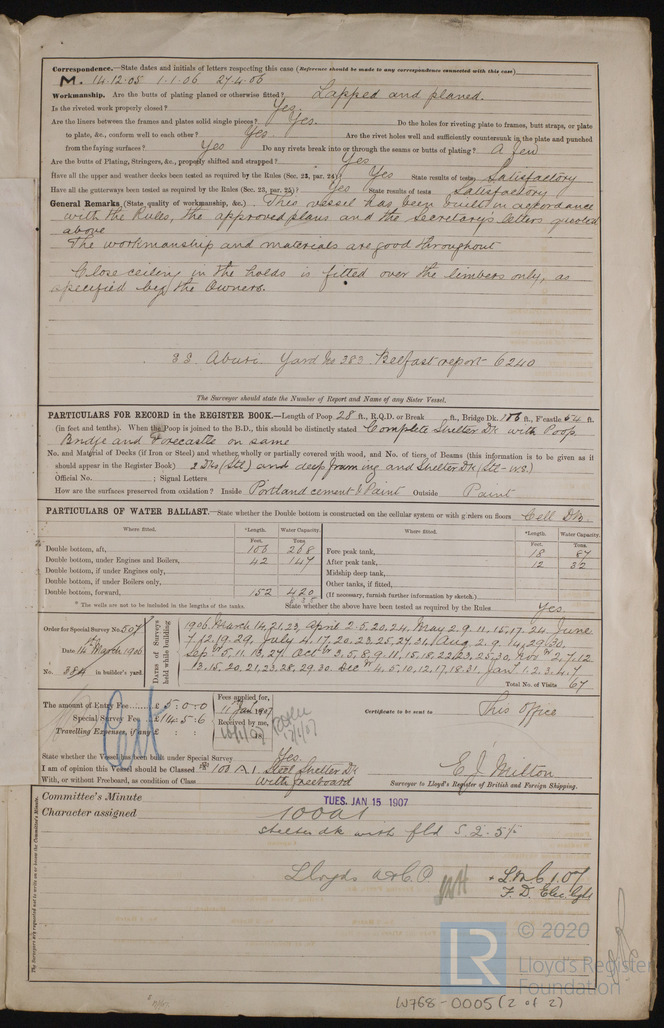 Correspondence.—State dates and initials of letters respecting this case (Reference should be made to any correspondence connected with this case)
M. 14.12.05 1.1.06 27.4.06
Workmanship. Are the butts of plating planed or otherwise fitted? Lapped and planed.
Is the riveted work properly closed? Yes.
Are the liners between the frames and plates solid single pieces? Yes. Do the holes for riveting plate to frames, butt straps, or plate
to plate, &c., conform well to each other? Yes Are the rivet holes well and sufficiently countersunk in the plate and punched
from the faying surfaces? Yes Do any rivets break into or through the seams or butts of plating? A few
Are the butts of Plating, Stringers, &c., properly shifted and strapped? Yes
Have all the upper and weather decks been tested as required by the Rules (Sec. 23, par. 24)? Yes State results of tests Satisfactory
Have all the gutterways been tested as required by the Rules (Sec. 23, par. 25)? Yes State results of tests Satisfactory
General Remarks (State quality of workmanship, &c.) This vessel has been built in accordance
with the Rules, the approved plans and the Secretary's letters quoted
above
The workmanship and materials are good throughout
Close ceiling in the holds is fitted over the limbers only, as
specified by the Owners.
SS. Aburi Yard No 383 Belfast report 6240
The Surveyor should state the Number of Report and Name of any Sister Vessel.
PARTICULARS FOR RECORD in the REGISTER BOOK.—Length of Poop 28 ft., R.Q.D. or Break ft., Bridge Dk. 106 ft., F'castle 64 ft.
(in feet and tenths). When the Poop is joined to the B.D., this should be distinctly stated Complete Shelter Dk with Poop
Bridge and Forecastle on same
No. and Material of Decks (if Iron or Steel) and whether wholly or partially covered with wood, and No. of tiers of Beams (this information is to be given as it
should appear in the Register Book) 2 Dks (Stl) and deep framing and Shelter Dk (Stl - ws.)
Official No. ; Signal Letters
How are the surfaces preserved from oxidation? Inside Portland cement & Paint Outside Paint
PARTICULARS OF WATER BALLAST.—State whether the Double bottom is constructed on the cellular system or with girders on floors Cell DB.
Where fitted. *Length. Water Capacity. Where fitted. *Length. Water Capacity.
Feet. Tons. Feet. Tons.
Double bottom, aft, 106 268 Fore peak tank, 18 87
Double bottom, under Engines and Boilers, 42 147 After peak tank, 12 32
Double bottom, if under Engines only, Midship deep tank,
Double bottom, if under Boilers only, Other tanks, if fitted,
Double bottom, forward, 152 420 (If necessary, furnish further information by sketch.)
* The wells are not to be included in the lengths of the tanks. State whether the above have been tested as required by the Rules Yes.
Order for Special Survey No. 507
Date 14th March 1906
No. 384 in builder's yard.
Dates of Surveys held while building
1906 March 14, 21, 23, April 2. 5, 20, 24, May 2. 9. 11, 15, 17. 24. June
7. 12. 19. 29, July 4. 17, 20, 23. 25, 27, 31, Aug 2. 9. 14, 29, 30,
13. 15, 20, 21, 23, 28, 29. 30 Dec 4, 5, 10, 12, 17, 18. 31, Jan 1. 2. 3. 4. 7
Total No. of Visits 67
The amount of Entry Fee £ 5 : 0 : 0 Fees applied for, 11 Jan 1907 Certificate to be sent to This Office
Special Survey Fee £ 145 : 6 Received by me,
Travelling Expenses, if any £
State whether the Vessel has been built under Special Survey Yes.
I am of opinion this Vessel should be Classed 100 A.1. Steel Shelter Dk
With, or without Freeboard, as condition of Class with freeboard
E. J. Milton
Surveyor to Lloyd's Register of British and Foreign Shipping.
Committee's Minute TUES. JAN 15 1907
Character assigned 100A1
shelter dk with fbd
Lloyds A & C.P. + LMC 1.07
F. D. Elec. light
The Surveyors are requested not to write on or below the Committee's Minute.
© 2020
LR
Lloyd's Register
Foundation
W768-0005 (2 of 2)